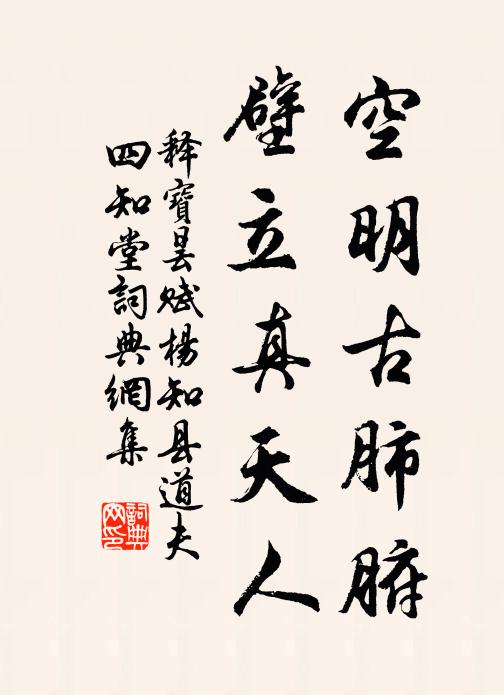 空明古肺腑
壁立真天人
释寶曇赋楊知县道夫
四知堂詞典網集
詞典网印